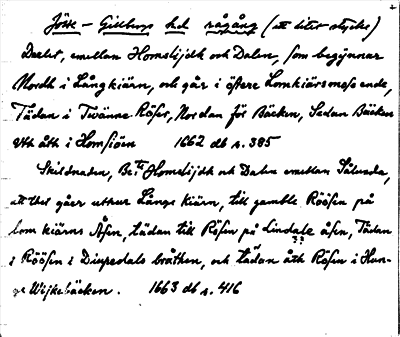 Jösse - Gillbergs hd rågång (ett litet stycke)
Deelet, emellan Homslijdh och Dalen, som begynnar
Nordh i Långkiärn, och går i östere Lomkiärsmoss ende,
Tädan i Twänne Röser, Nordan för Bäcken, Sedan Bäcken
Utt åth i Homsiöen 1662 db s. 385
Skilnaden, Be:te Homslijdh och Dalen emellan Sålunda,
att thet gåer uthur Långe kiärn, till gamble Röösen på
Lom kiärns Åsen, tädan till Rösen på Lindale åsen, Tädan
??
i Röösen i Diupedals bråthen, och tädan åth Rösen i Hun-
ge Wijkebäcken. 1663 db s. 416